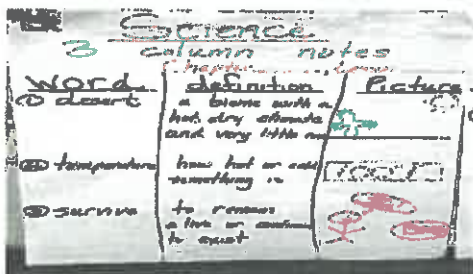 Science
3 column notes
Chapter
Word definition Picture
① desert a biome with a
hot, dry climate
and very little
② temperature how hot or cold
something is
③ survive to remain
alive or continue
to exist